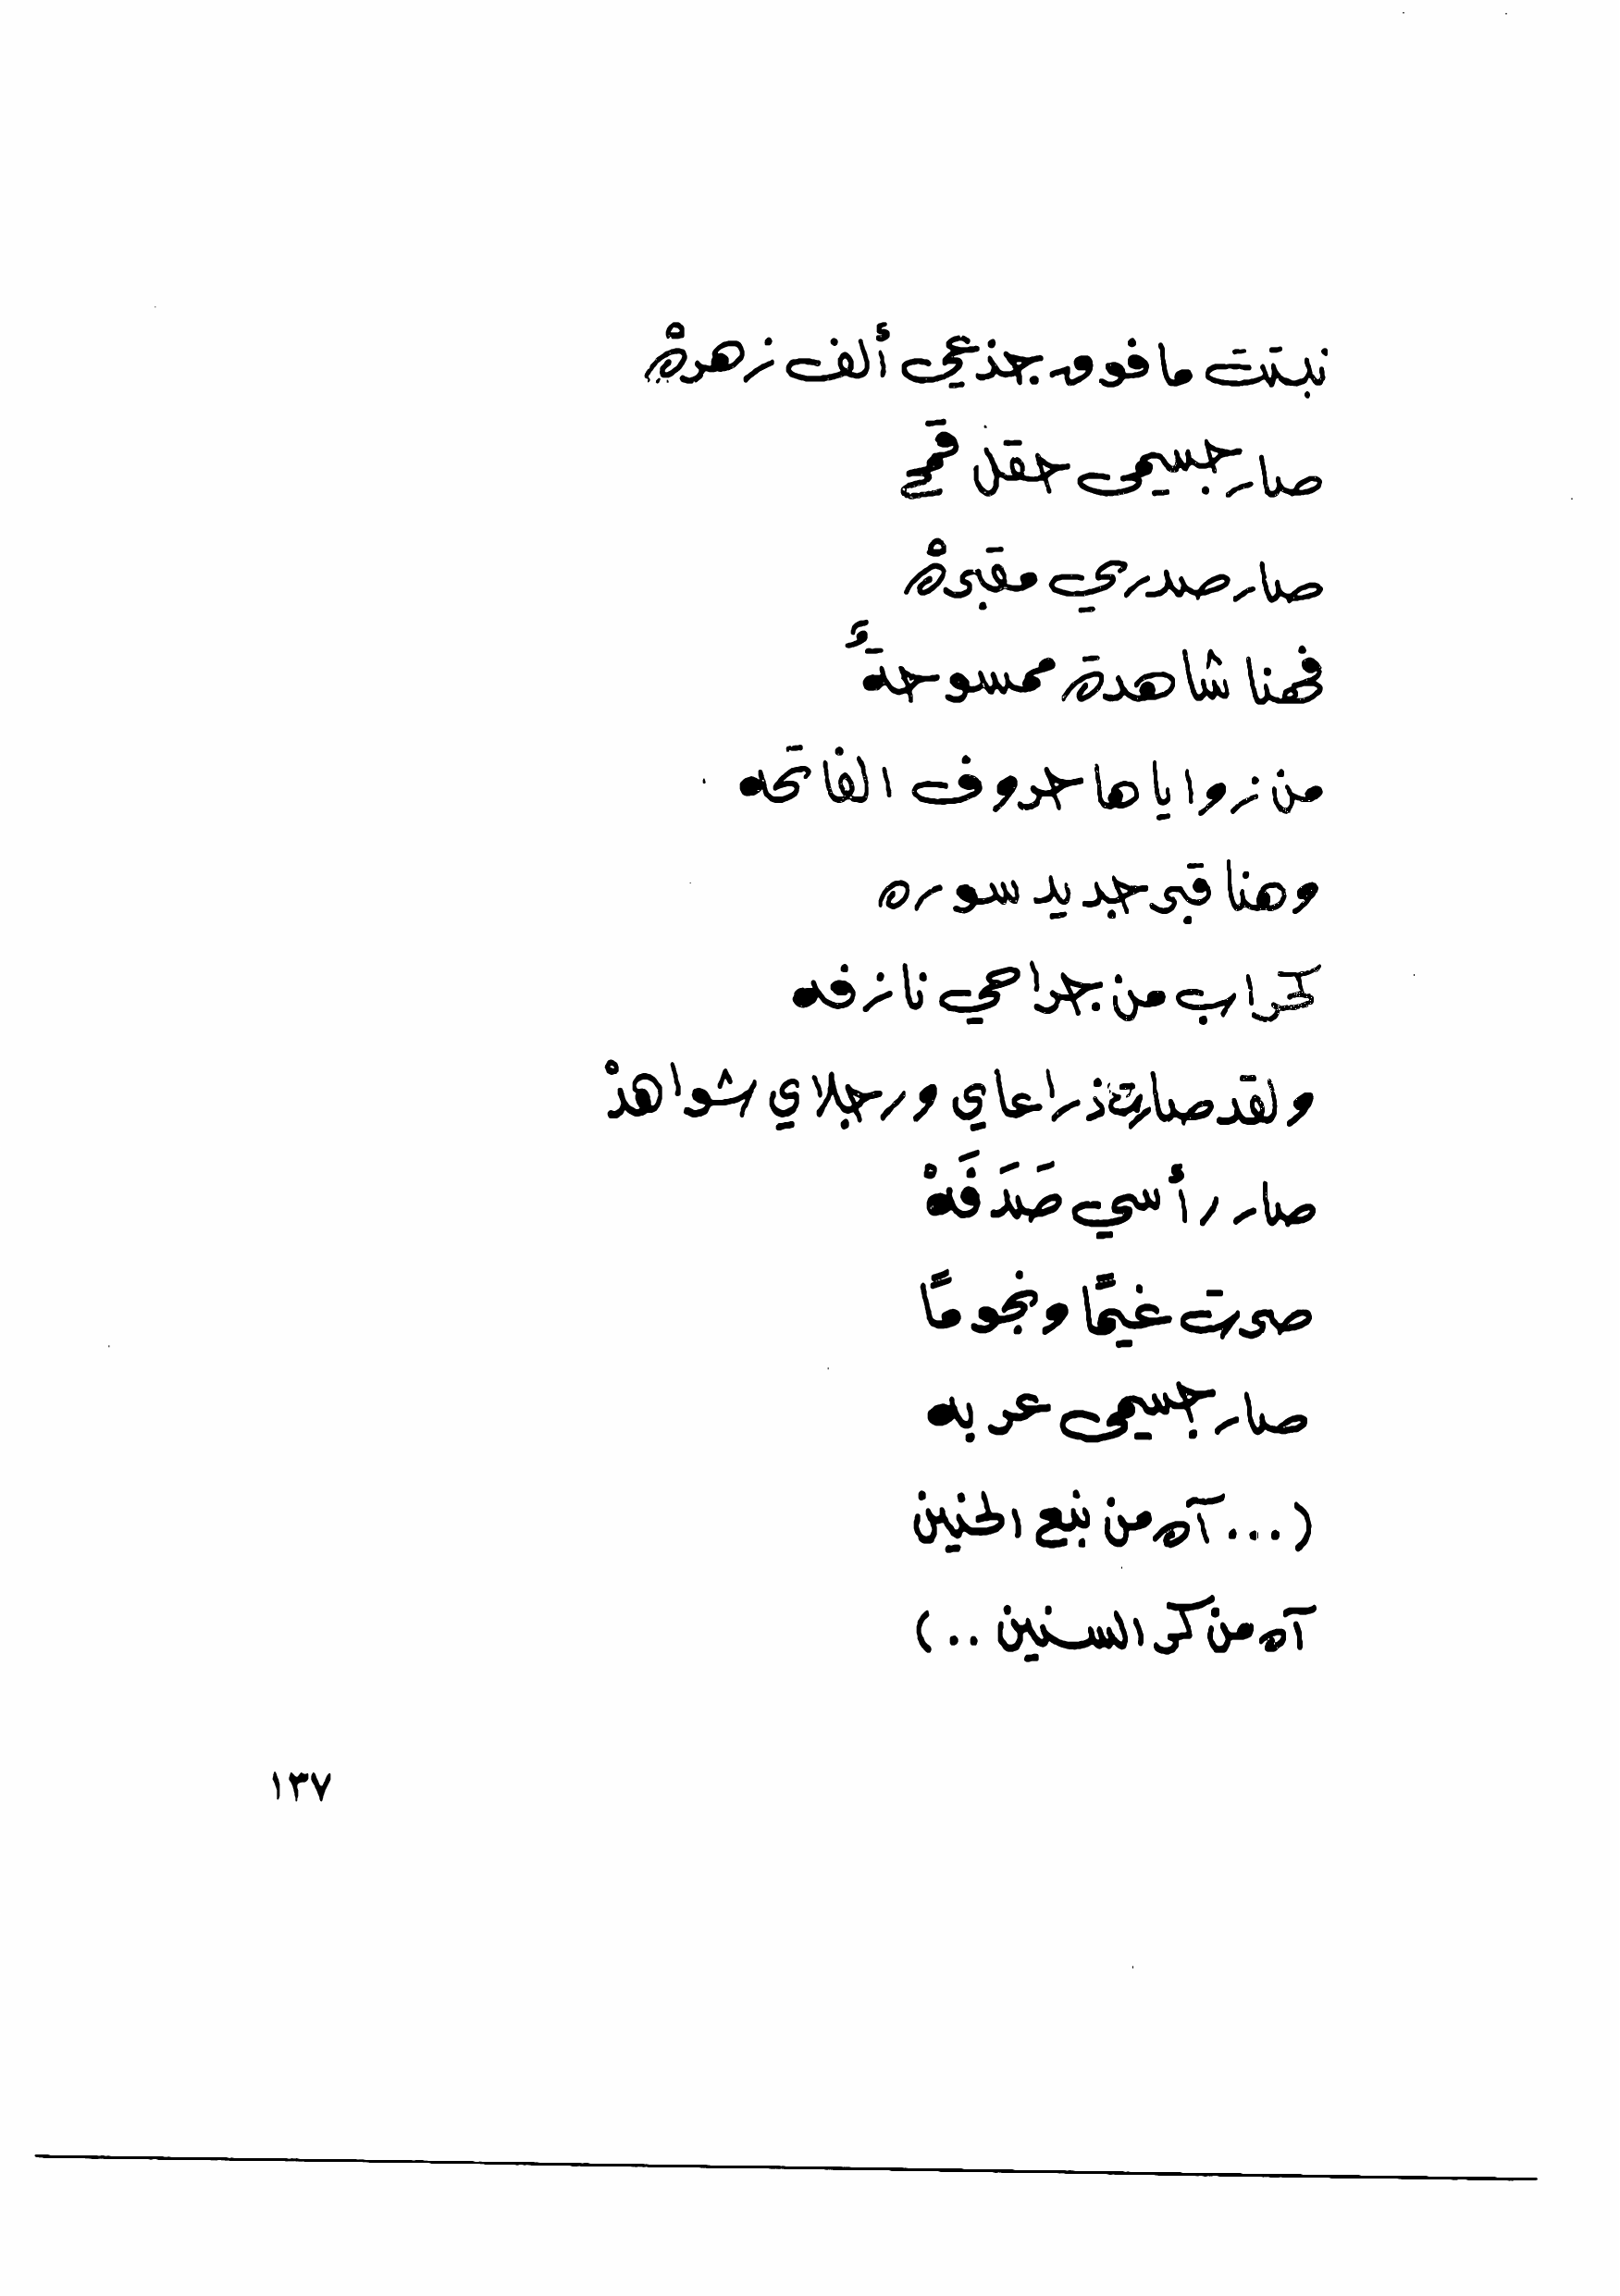 نبتت ما فوق جذعي ألف زهرةْ
صار جسمي حقل قمح
صار صدري مقبرةْ
فهنا شاهدة ممسوحةٌ
من زواياها حروف الفاتحه
وهنا قبر جديد سوره
كحراب من جراحي نازفه
ولقد صارت ذراعاي ورجلاي شواهدْ
صار رأسي صَدَفَهْ
صرت غيمًا ونجومًا
صار جسمي عربه
(... آه من نبع الحنين
آه من كر السنين ..)
١٣٧